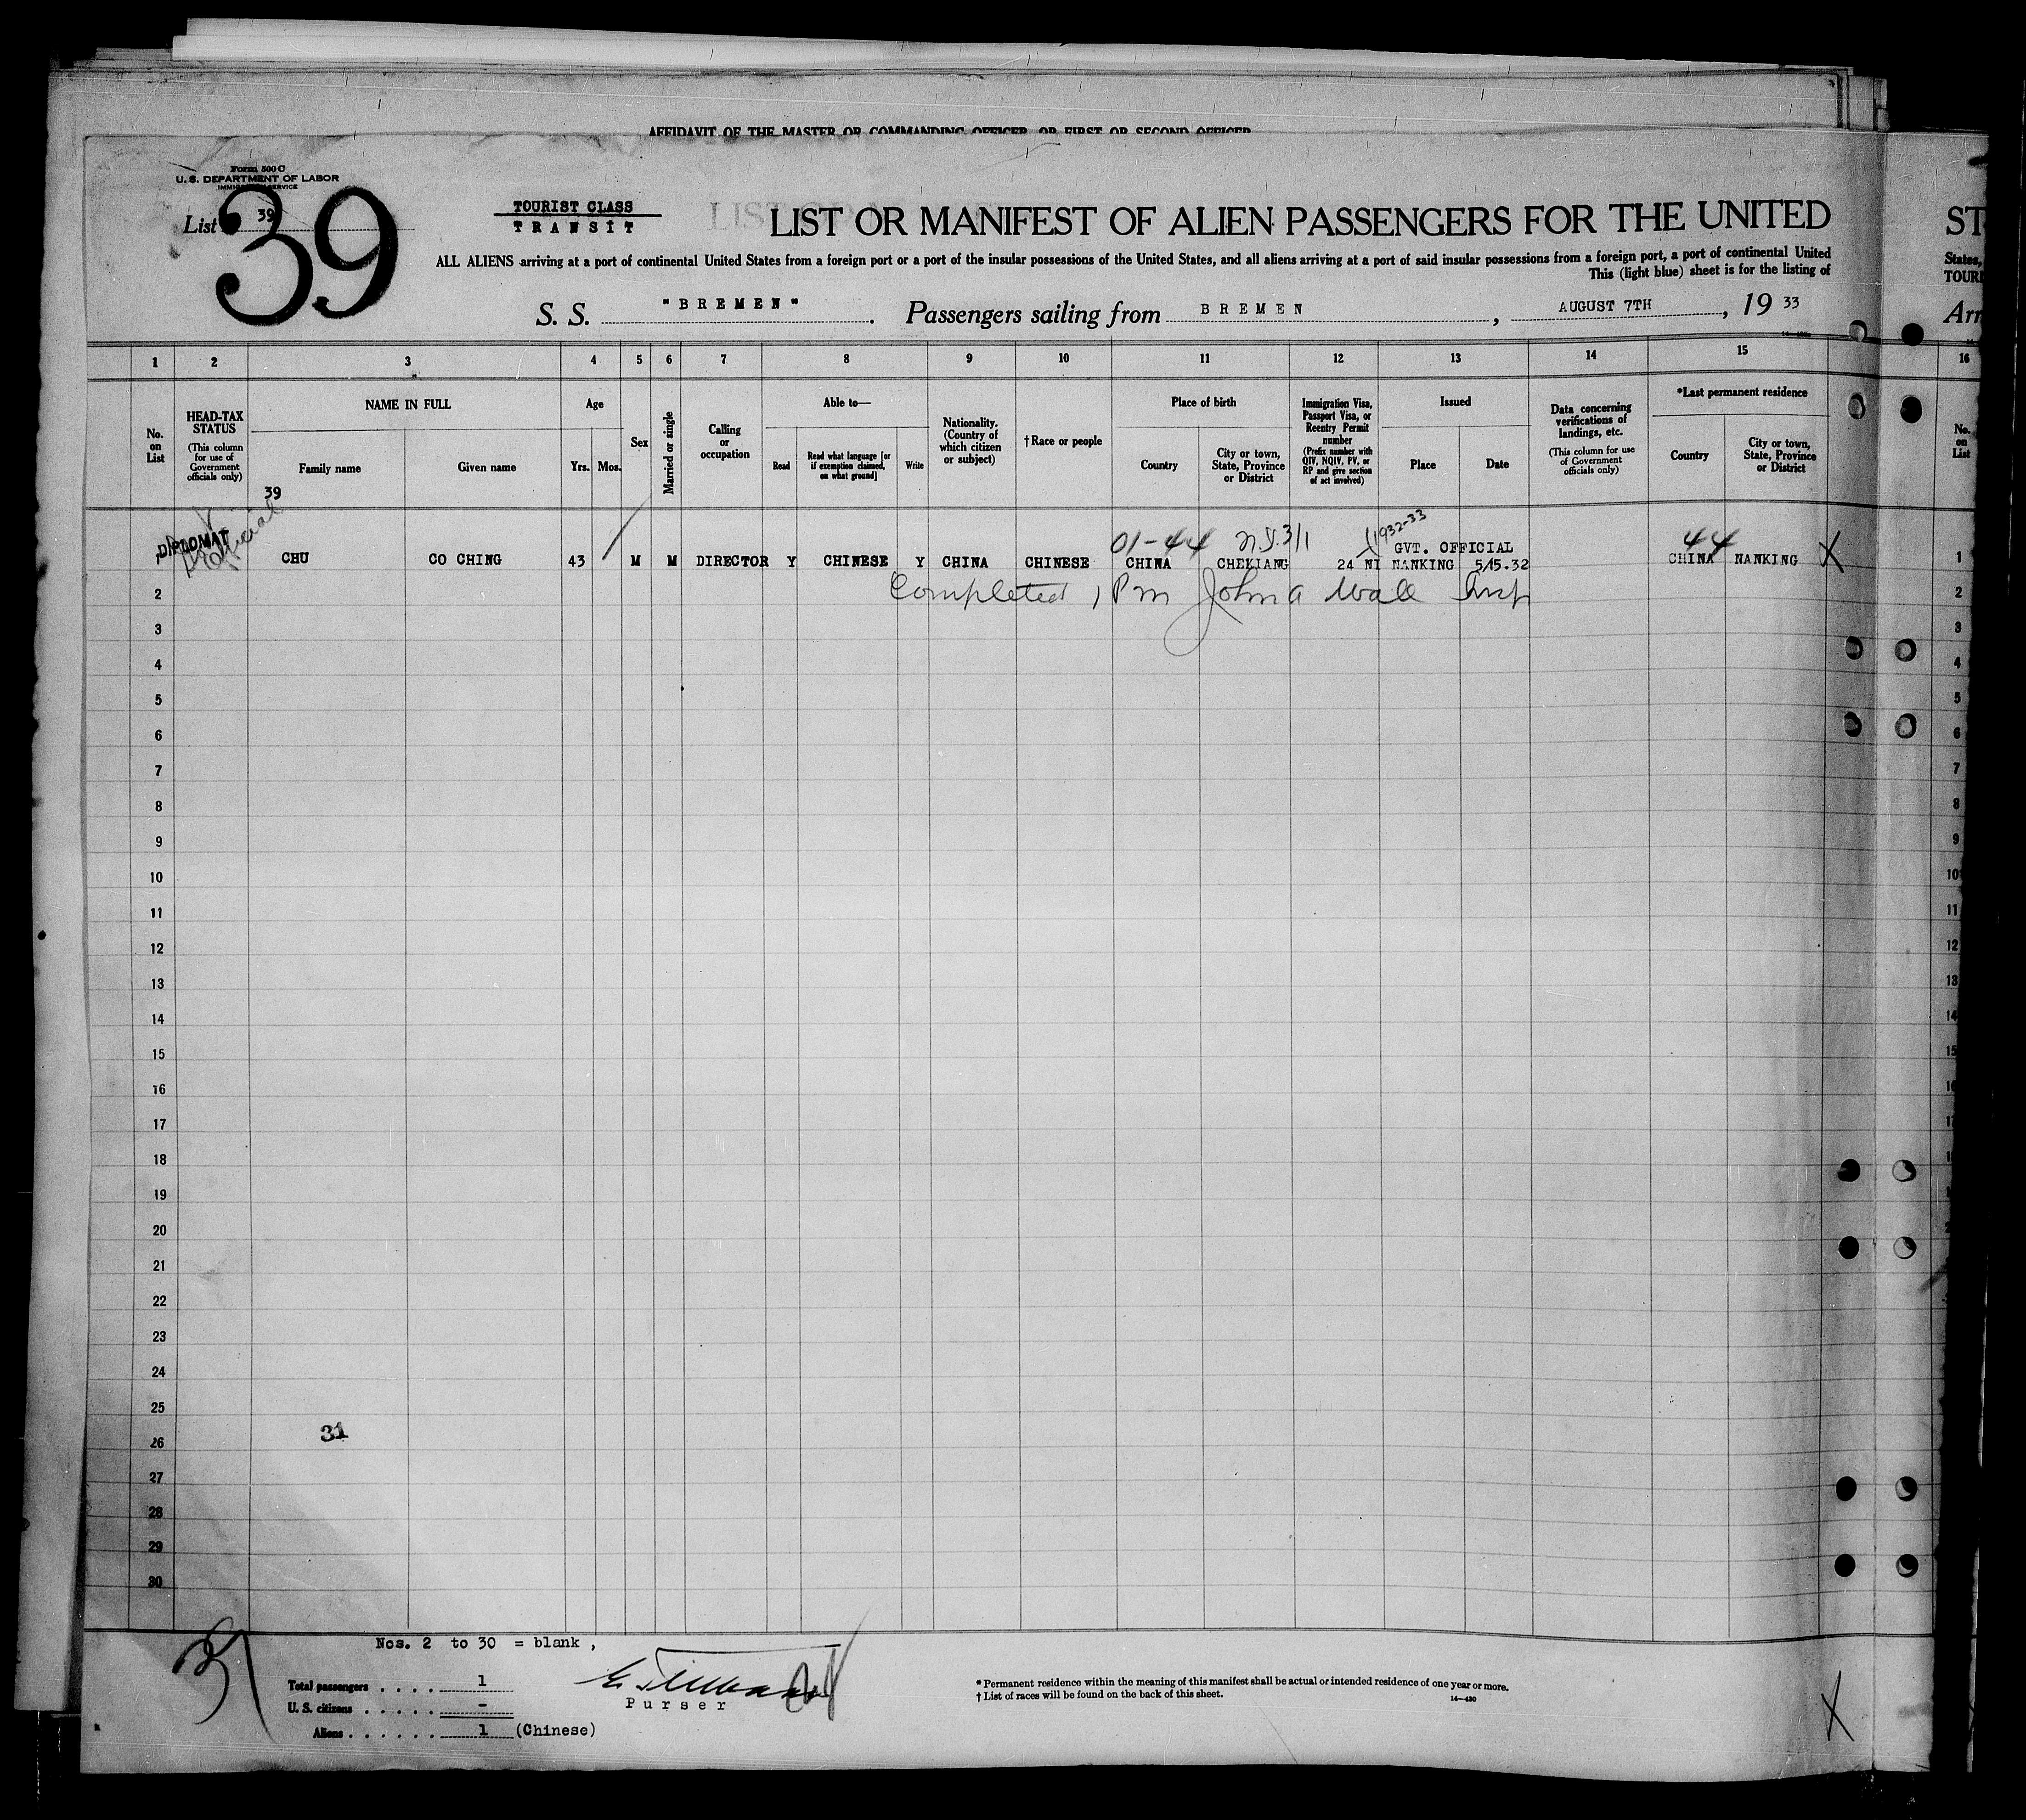 AFFIDAVIT OF THE MASTER OR COMMANDING OFFICER, OR FIRST OR SECOND OFFICER
Form 500 C
U. S. DEPARTMENT OF LABOR
IMMIGRATION SERVICE
List 39
39
TOURIST CLASS
TRANSIT
LIST OR MANIFEST OF ALIEN PASSENGERS FOR THE UNITED
ST
ALL ALIENS arriving at a port of continental United States from a foreign port or a port of the insular possessions of the United States, and all aliens arriving at a port of said insular possessions from a foreign port, a port of continental United
States,
This (light blue) sheet is for the listing of
TOURI
S. S. "BREMEN". Passengers sailing from BREMEN, AUGUST 7TH, 19 33
Arr
14—430
1 2 3 4 5 6 7 8 9 10 11 12 13 14 15 16
No. on List
HEAD-TAX STATUS
(This column for use of Government officials only)
NAME IN FULL
Family name
Given name
Age
Yrs. Mos.
Sex
Married or single
Calling or occupation
Able to—
Read
Read what language [or if exemption claimed, on what ground]
Write
Nationality. (Country of which citizen or subject)
†Race or people
Place of birth
Country
City or town, State, Province or District
Immigration Visa, Passport Visa, or Reentry Permit number
(Prefix number with QIV, NQIV, PV, or RP and give section of act involved)
Issued
Place
Date
Data concerning verifications of landings, etc.
(This column for use of Government officials only)
*Last permanent residence
Country
City or town, State, Province or District
No. on List
39
01-44 1932-33 44
GVT. OFFICIAL
1 DIPLOMAT CHU CO CHING 43 M M DIRECTOR Y CHINESE Y CHINA CHINESE CHINA CHEKIANG 24 NI NANKING 5/15.32 CHINA NANKING X 1
2 Completed 1 Pm John A Wall Insp 2
3 3
4 4
5 5
6 6
7 7
8 8
9 9
10 10
11 11
12 12
13 13
14 14
15 15
16 16
17 17
18
19
20
21
22
23
24
25
31
26
27
28
29
30
Nos. 2 to 30 = blank,
Total passengers . . . . 1
U. S. citizens . . . . . –
Aliens . . . . . . 1 (Chinese)
Purser
* Permanent residence within the meaning of this manifest shall be actual or intended residence of one year or more.
† List of races will be found on the back of this sheet.
14—430
X